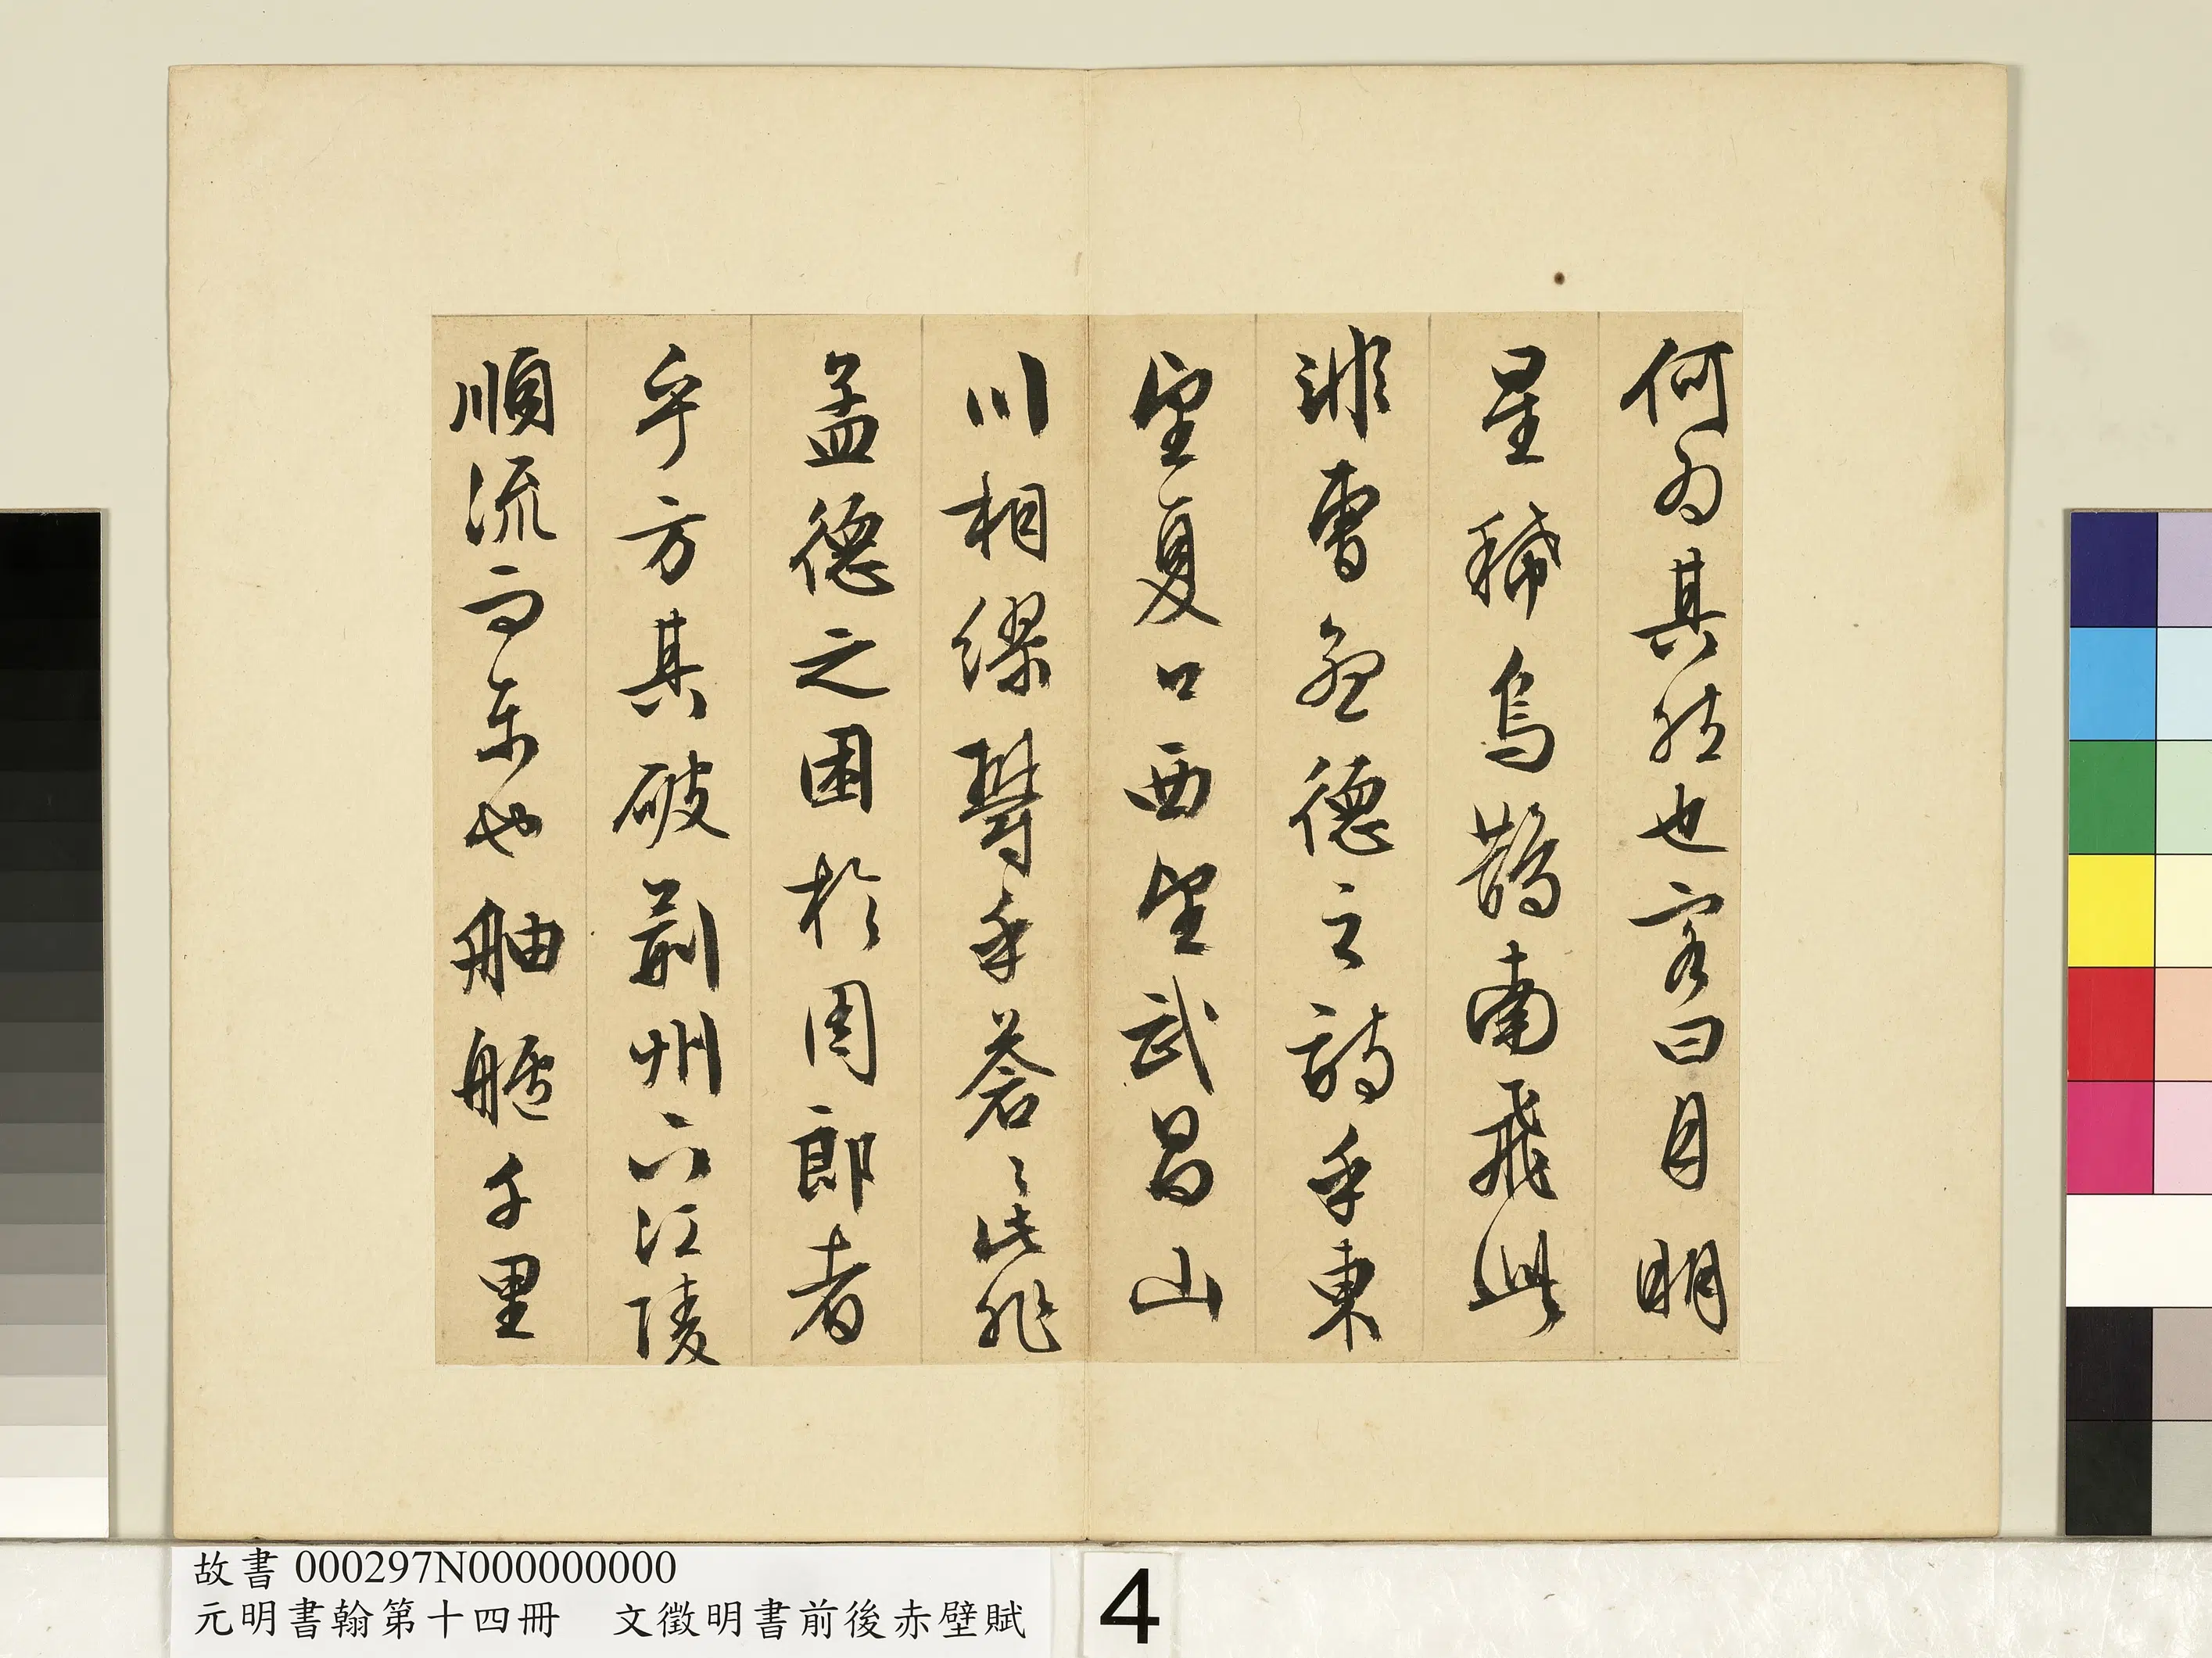 何為其然也客曰月明
星稀烏鵲南飛此
非曹孟德之詩乎東
望夏口西望武昌山
川相繆鬱乎蒼〻此非
孟德之困於周郎者
乎方其破荊州下江陵
順流而東也舳艫千里
故書 000297N000000000
元明書翰第十四冊　文徵明書前後赤壁賦
4